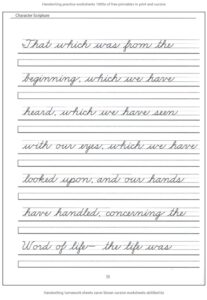 Handwriting practice worksheets 1000s of free printables in print and cursive
Character Scripture
That which was from the
beginning, which we have
heard, which we have seen
with our eyes, which we have
looked upon, and our hands
have handled, concerning the
Word of life— the life was
Handwriting homework sheets save! blover cursive worksheets